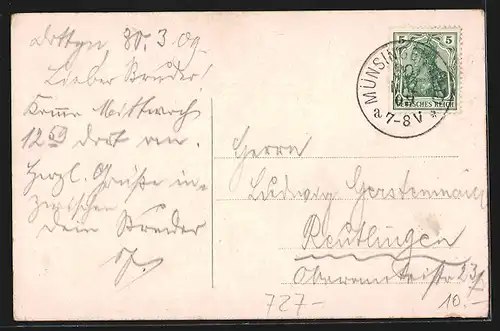 Dottgn, 30.3.09
Lieber Bruder!
Komme Mittwoch
12 59 dort an.
Herzl. Grüße in-
zwischen
Dein Bruder
MÜNSINGEN
a 7-8 V
5 5
DEUTSCHES REICH
Herrn
Ludwig Gerstenmaier
Reutlingen
23
727.-
10.-